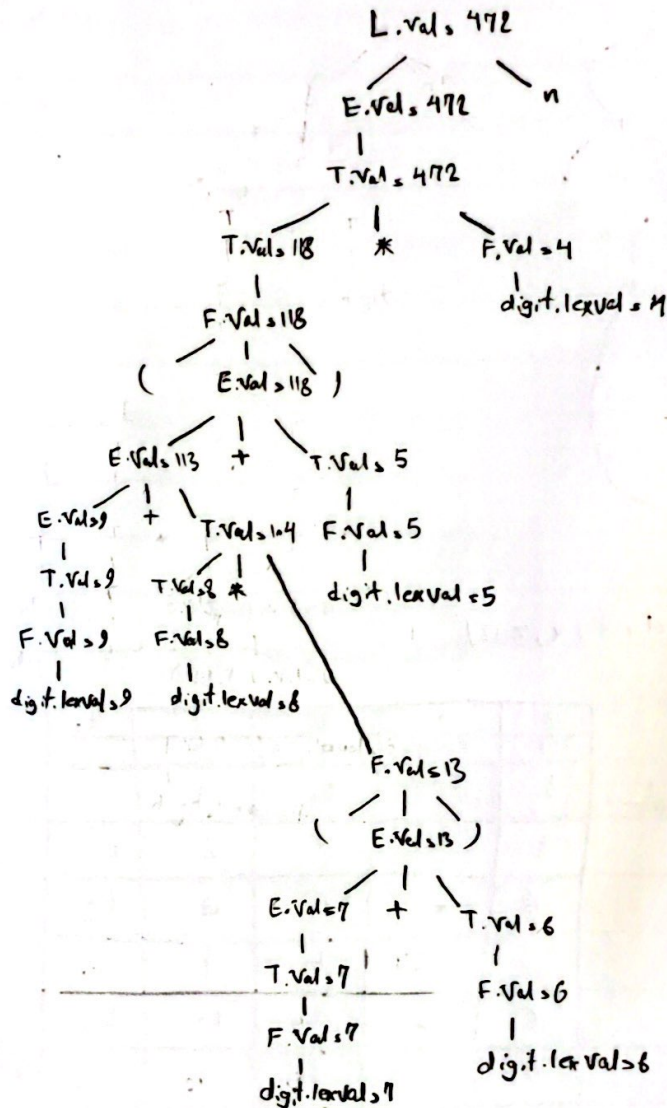 L.val = 472
E.val = 472 n
T.val = 472
T.val = 118 * F.val = 4
F.val = 118 digit.lexval = 4
( E.val = 118 )
E.val = 113 + T.val = 5
E.val = 9 + T.val = 104 F.val = 5
T.val = 9 T.val = 8 * digit.lexval = 5
F.val = 9 F.val = 8
digit.lexval = 9 digit.lexval = 8
F.val = 13
( E.val = 13 )
E.val = 7 + T.val = 6
T.val = 7 F.val = 6
F.val = 7 digit.lexval = 6
digit.lexval = 7